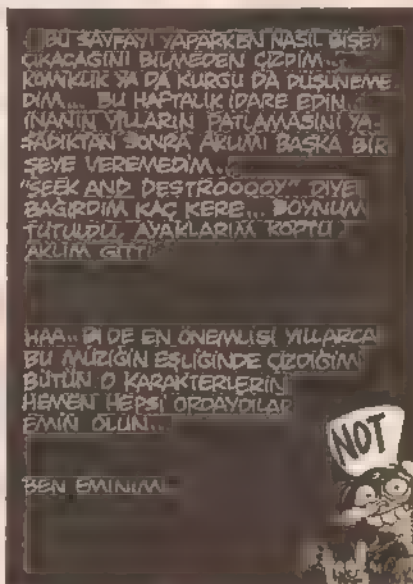 BU SAYFAYI YAPARKEN NASIL BİŞEY
ÇIKACAĞINI BİLMEDEN ÇİZDİM...
KOMİKLİK YA DA KURGU DA DÜŞÜNEME
DİM... BU HAFTALIK İDARE EDİN...
İNANIN YILLARIN PATLAMASINI YA-
ŞADIKTAN SONRA AKLIMI BAŞKA BİR
ŞEYE VEREMEDİM...
"SEEK AND DESTROOOOY" DİYE
BAĞIRDIM KAÇ KERE... BOYNUM
TUTULDU, AYAKLARIM KOPTU
AKLIM GİTTİ
HAA... Bİ DE EN ÖNEMLİSİ YILLARCA
BU MÜZİĞİN EŞLİĞİNDE ÇİZDİĞİM
BÜTÜN O KARAKTERLERİN
HEMEN HEPSİ ORDAYDILAR
EMİN OLUN...
BEN EMİNİM!
NOT